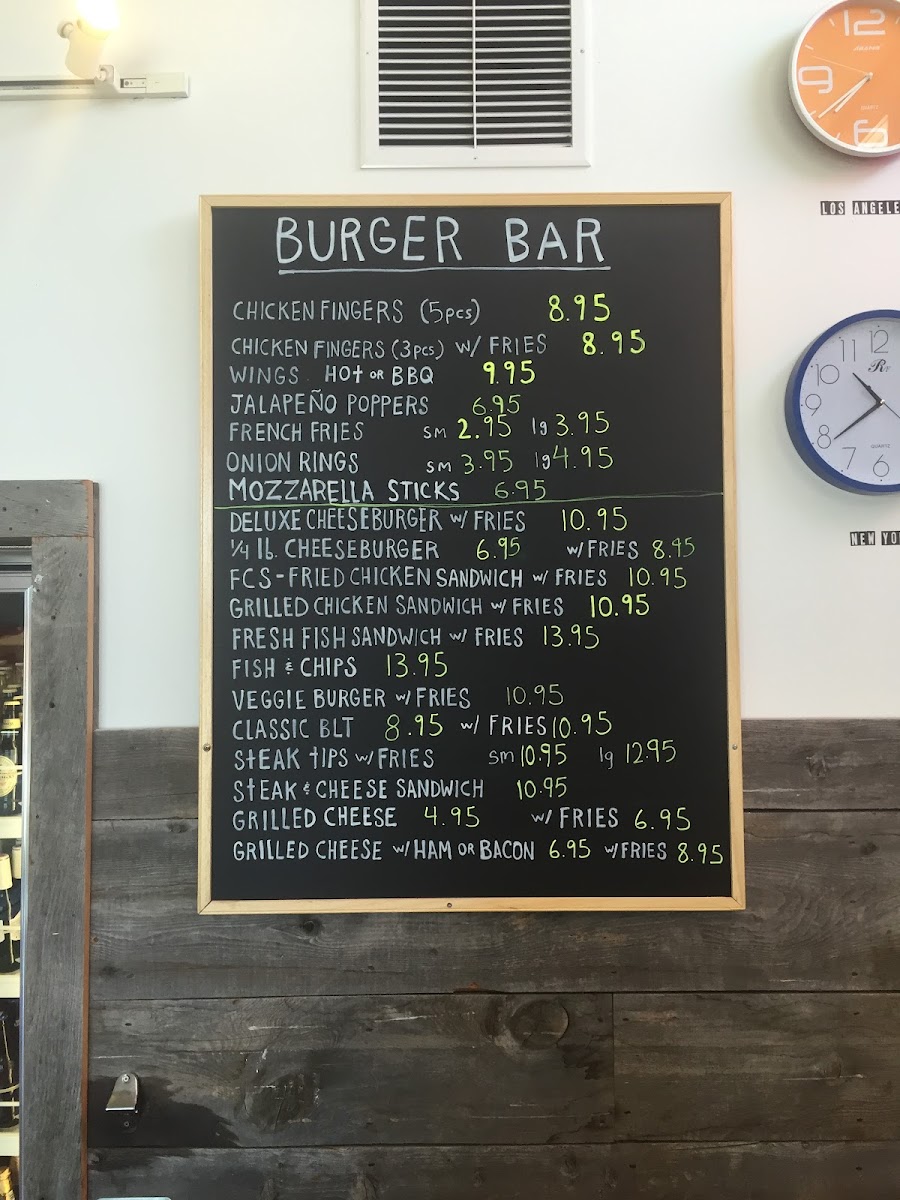 BURGER BAR
CHICKEN FINGERS (5pcs) 8.95
CHICKEN FINGERS (3pcs) W/ FRIES 8.95
WINGS HOT OR BBQ 9.95
JALAPEÑO POPPERS 6.95
FRENCH FRIES sm 2.95 lg 3.95
ONION RINGS sm 3.95 lg 4.95
MOZZARELLA STICKS 6.95
DELUXE CHEESEBURGER W/ FRIES 10.95
1/4 lb. CHEESEBURGER 6.95 W/ FRIES 8.95
FCS-FRIED CHICKEN SANDWICH W/ FRIES 10.95
GRILLED CHICKEN SANDWICH W/ FRIES 10.95
FRESH FISH SANDWICH W/ FRIES 13.95
FISH & CHIPS 13.95
VEGGIE BURGER W/ FRIES 10.95
CLASSIC BLT 8.95 W/ FRIES 10.95
STEAK TIPS W/ FRIES sm 10.95 lg 12.95
STEAK & CHEESE SANDWICH 10.95
GRILLED CHEESE 4.95 W/ FRIES 6.95
GRILLED CHEESE W/ HAM OR BACON 6.95 W/ FRIES 8.95
12
9
6
QUARTZ
LOS ANGELE
11 12
10
9
8
7 6
QUARTZ
NEW YO